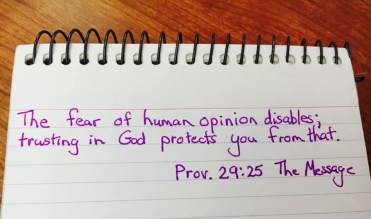 The fear of human opinion disables;
trusting in God protects you from that.
Prov. 29:25 The Message